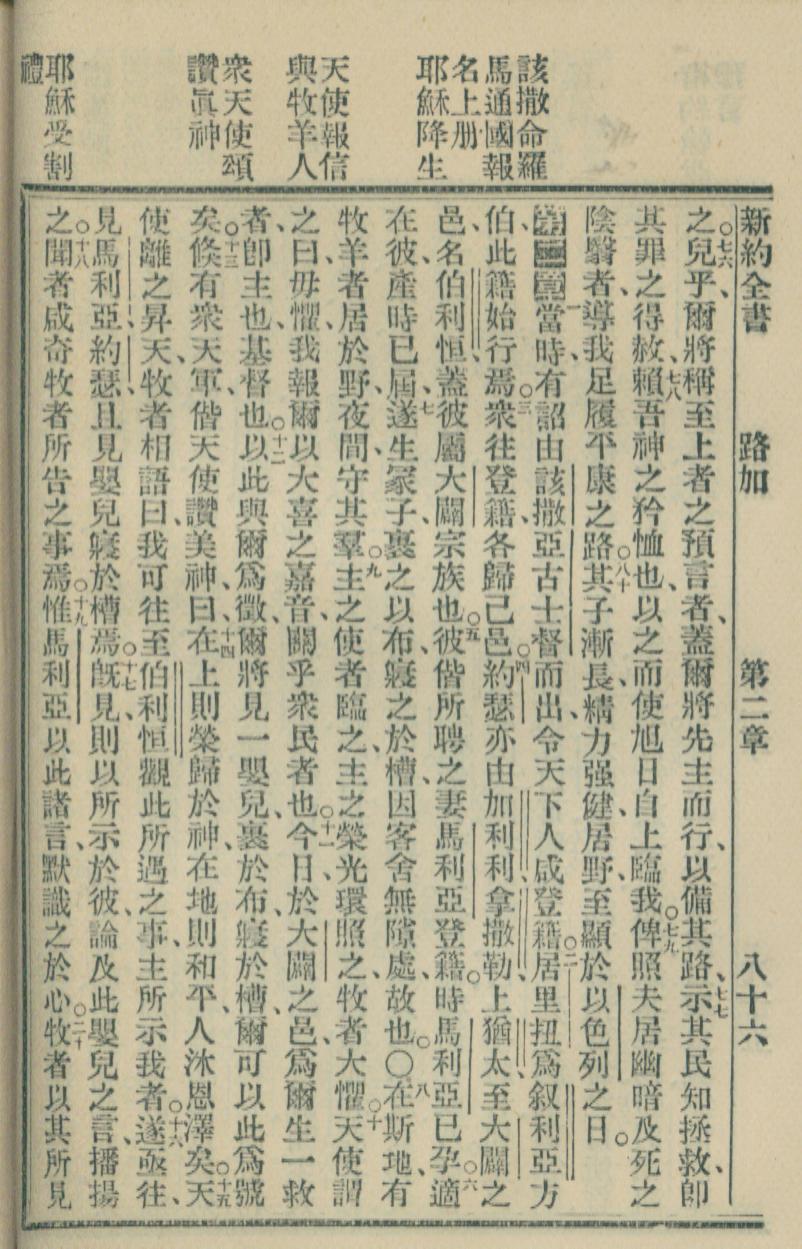 該撒命羅
馬通國報
名上册
耶穌降生
天使報信
與牧羊人
衆天使頌
讚眞神
耶穌受割
禮
新約全書 路加 第二章 八十六
之○七六兒乎、爾將稱至上者之預言者、蓋爾將先主而行、以備其路、七七示其民知拯救、卽
其罪之得赦、七八賴吾神之矜恤也、以之而使旭日自上臨我、○七九俾照夫居幽暗及死之
陰翳者、導我足履平康之路○八十其子漸長、精力强健、居野、至顯於以色列之日○
第二章一當時、有詔由該撒亞古士督而出、令天下人咸登籍、○二居里扭爲叙利亞方
伯、此籍始行焉○三衆往登籍、各歸己邑○四約瑟亦由加利利拿撒勒、上猶太、至大闢之
邑、名伯利恒、蓋彼屬大闢宗族也○五彼偕所聘之妻馬利亞登籍○時馬利亞已孕○六適
在彼、產時已屆、七遂生冢子、裹之以布、寢之於槽、因客舍無隙處、故也○〇八在斯地、有
牧羊者、居於野、夜間、守其羣○九主之使者臨之、主之榮光環照之、牧者大懼○十天使謂
之曰、毋懼、我報爾以大喜之嘉音、關乎衆民者也○十一今日、於大闢之邑、爲爾生一救
者、卽主也、基督也○十二以此與爾爲徵、爾將見一嬰兒、裹於布、寢於槽、爾可以此爲號
矣○十三倏有衆天軍、偕天使讚美神、曰、十四在上則榮歸於神、在地則和平、人沐恩澤矣○十五天
使離之昇天、牧者相語曰、我可往至伯利恒、觀此所遇之事、主所示我者○十六遂亟往、
見馬利亞、約瑟、且見嬰兒寢於槽焉○十七旣見、則以所示於彼、論及此嬰兒之言、播揚
之○十八聞者咸奇牧者所告之事焉○十九惟馬利亞以此諸言、默識之於心○二十牧者以其所見